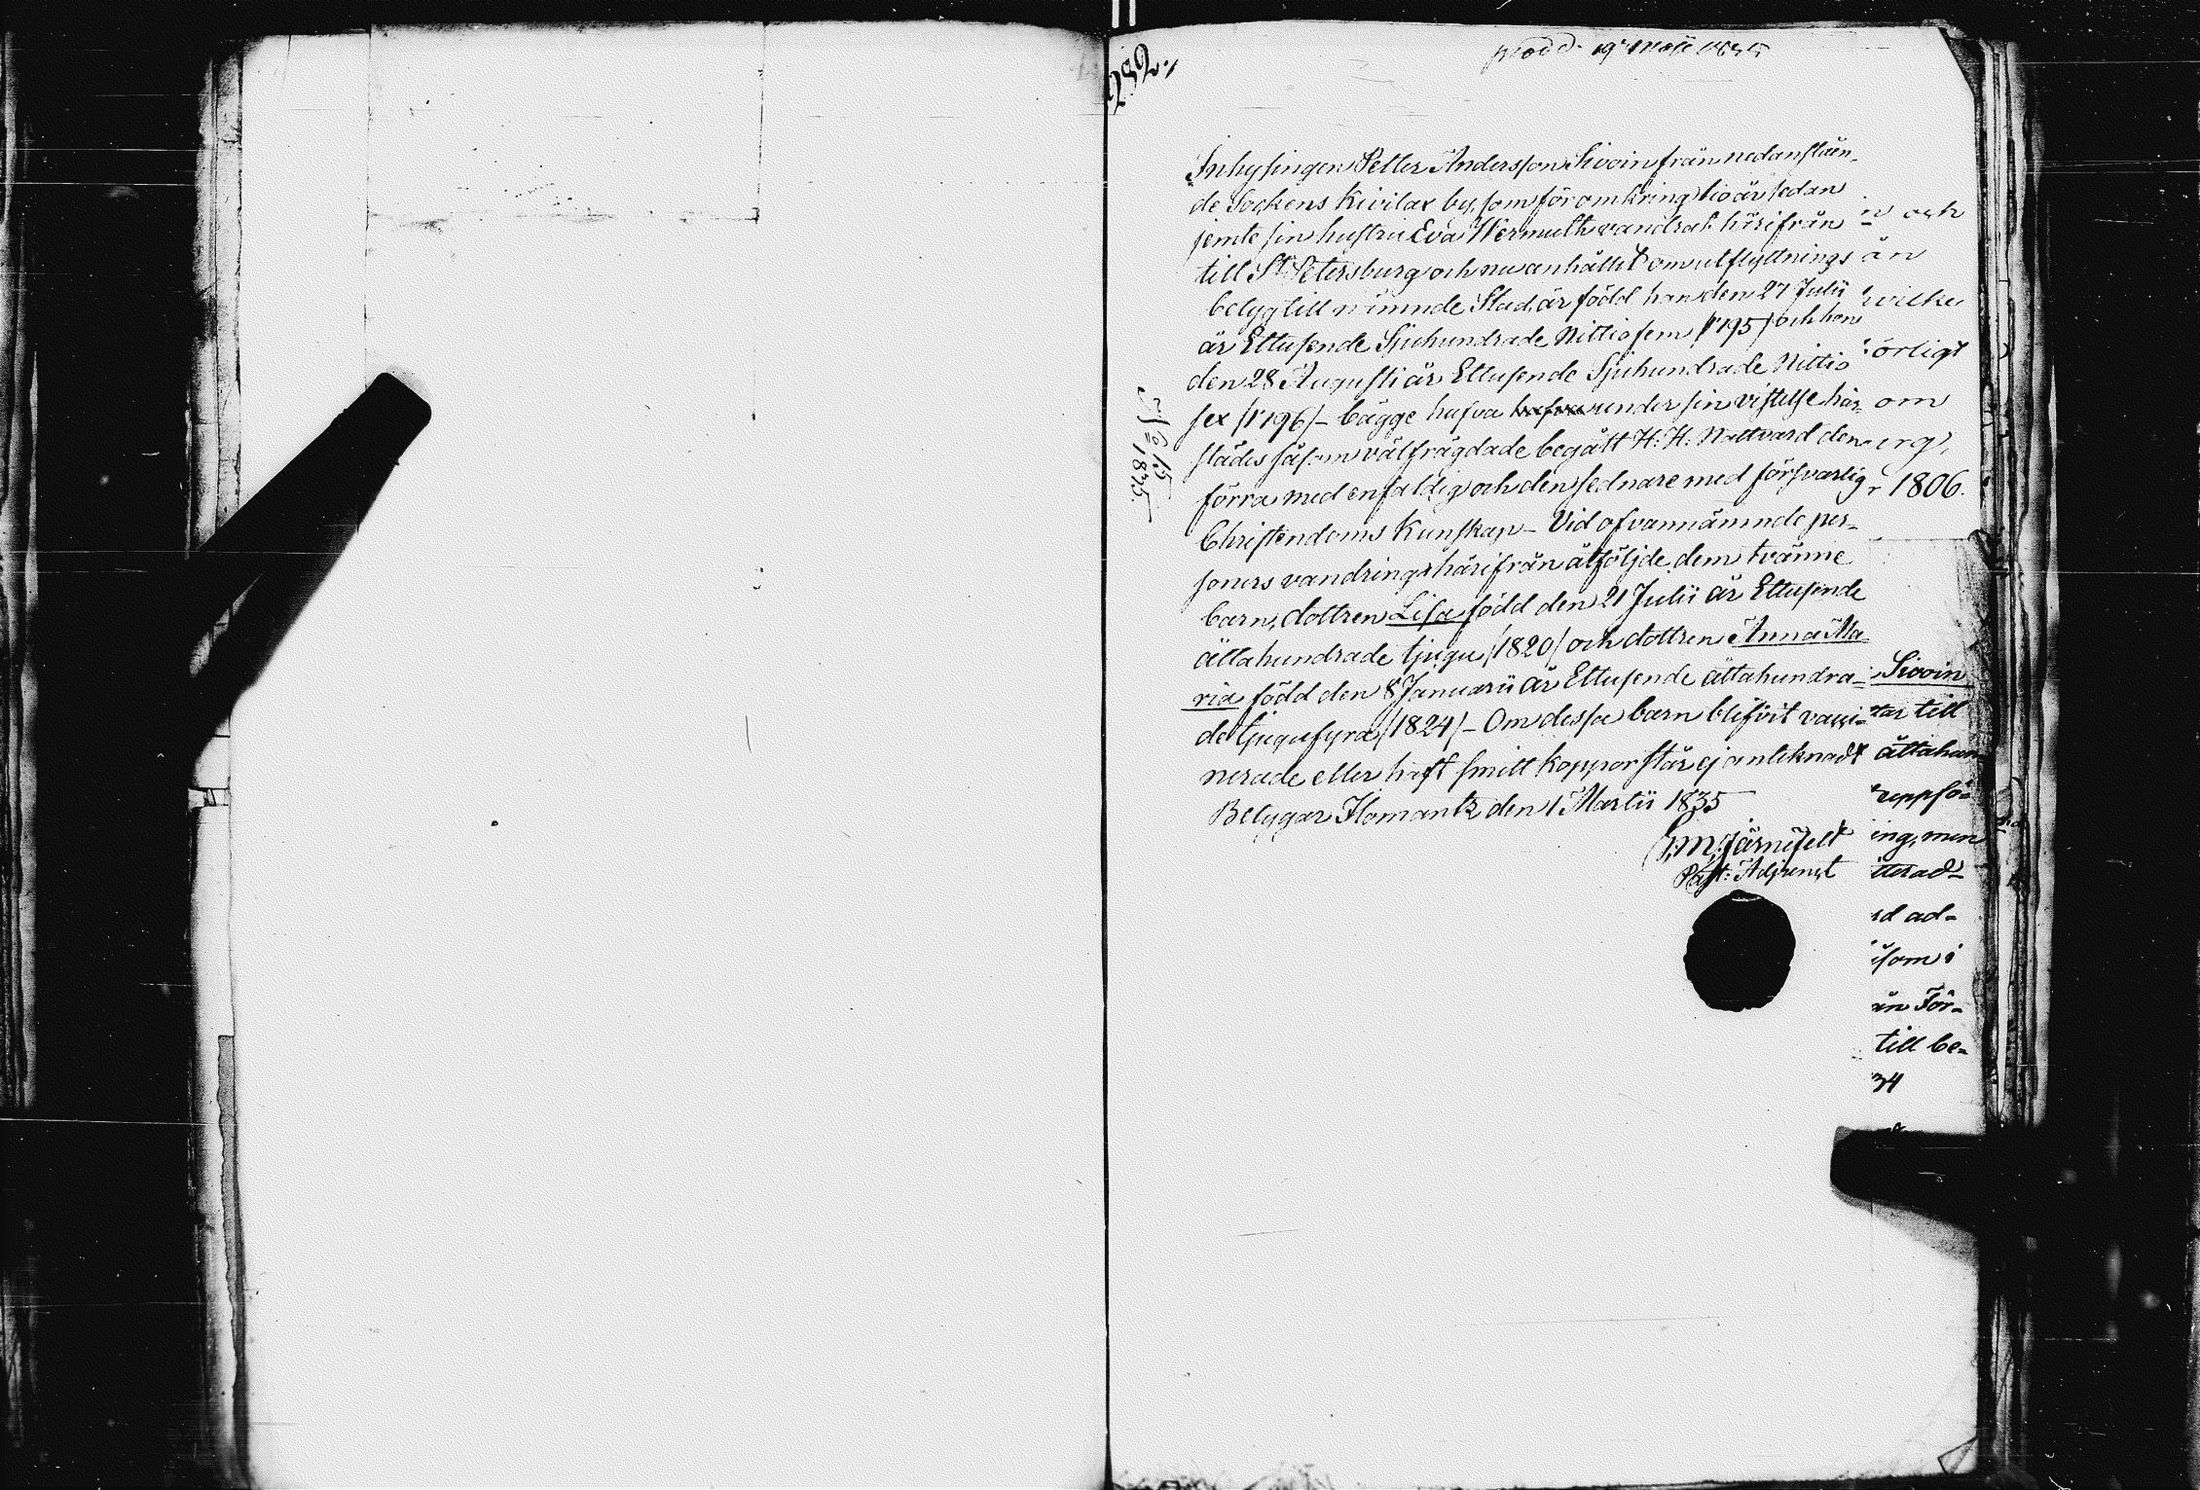 232.
prod. 19 Maji 1835
Inhysingen Petter Andersson Sivoin från nedanståen-
de Sockens Kivilax by, som för omkring tio år sedan
jemte sin hustru Eva Wermuth vandrat härifrån
till St Petersburg och nu anhållit om utflyttnings
betyg till nämnde Stad, är född han den 27 Julii
år Ettusende Sjuhundrade Nittiofem /1795/ och hon
den 28 Augusti år Ettusende Sjuhundrade Nittio
sex /1796/ – bägge hafva hafva under sin vistelse här-
städes såsom välfrägdade begått H. H. Nattvard den
förra med enfaldig och den sednare med försvarlig
Christendoms Kunskap – Vid ofvannämnde per-
soners vandring härifrån åtföljde dem tvänne
barn, dottren Lisa född den 21 Julii år Ettusende
åttahundrade tjugu /1820/ och dottren Anna Ma-
ria född den 8 Januarii år Ettusende åttahundra-
de tjugufyra /1824/ – Om dessa barn blifvit vacci-
nerade eller haft smitt koppor står ej antecknadt
Betygar Ilomants den 1 Martii 1835
Järnefelt
Past: Adjunct
No 15
1835.
och
ån
hvilke
örligt
om
erg,
1806.
Sivoin
tar till
åttahun
uppfö-
ing, men
tterad-
rd ad-
åsom i
ån För-
till be-
34